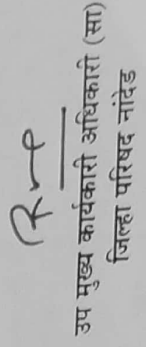 उप मुख्य कार्यकारी अधिकारी (सा)
जिल्हा परिषद नांदेड